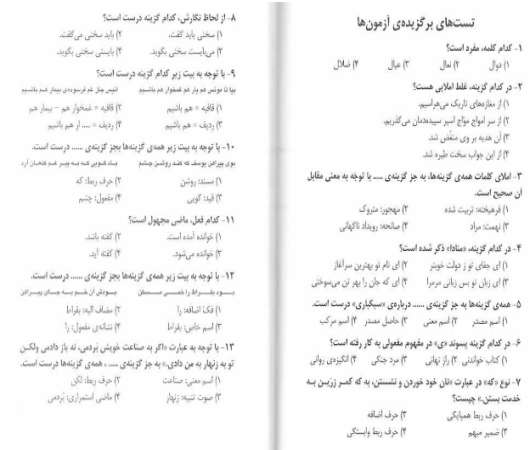 تست‌های برگزیده‌ی آزمون‌ها
۱- کدام کلمه، مفرد است؟
۱) دوال ۲) نعال ۳) عیال ۴) ضلال
۲- در کدام گزینه، غلط املایی هست؟
۱) از مغازه‌های تاریک می‌هراسیم.
۲) از سر امواج مواج اسیر سپیده‌دمان می‌گذریم.
۳) آن هدیه بر وی منغّص شد.
۴) از این جواب سخت طیره شد.
۳- املای کلمات همه‌ی گزینه‌ها، به جز گزینه‌ی ..... با توجه به معنی مقابل
آن صحیح است.
۱) فرهیخته: تربیت شده ۲) مهجور: متروک
۳) نهمت: مراد ۴) صانحه: رویداد ناگهانی
۴- در کدام گزینه، «منادا» ذکر شده است؟
۱) ای جفای تو ز دولت خوبتر ۲) ای نام تو بهترین سرآغاز
۳) ای زبان تو بس زیانی مرمرا ۴) ای که جان را بهر تن می‌سوختی
۵- همه‌ی گزینه‌ها به جز گزینه‌ی ...... درباره‌ی «سبکباری» درست است.
۱) اسم مصدر ۲) اسم معنی ۳) حاصل مصدر ۴) اسم مرکب
۶- در کدام گزینه پسوند «ی» در مفهوم مفعولی به کار رفته است؟
۱) کتاب خواندنی ۲) راز نهانی ۳) مرد جنگی ۴) انگیزه‌ی روانی
۷- نوع «که» در عبارت «نان خود خوردن و نشستن، به که کمر زرین به
خدمت بستن.» چیست؟
۱) حرف ربط همپایگی ۲) حرف اضافه
۳) ضمیر مبهم ۴) حرف ربط وابستگی
۸- از لحاظ نگارش، کدام گزینه درست است؟
۱) سخنی باید گفت. ۲) باید سخنی می‌گفت.
۳) می‌بایست سخنی بگوید. ۴) بایستی سخنی بگوید.
۹- با توجه به بیت زیر کدام گزینه درست است؟
بیا تا مونس هم یار هم غمخوار هم باشیم انیس جان غم فرسوده‌ی بیمار هم باشیم
۱) قافیه = هم باشیم ۲) قافیه = غمخوار هم – بیمار هم
۳) ردیف = هم باشیم ۴) ردیف = ..... ار هم باشیم
۱۰- با توجه به بیت زیر همه‌ی گزینه‌ها بجز گزینه‌ی ...... درست است.
بوی پیراهن یوسف که کند روشن چشم باد گویی که به پیر غم کنعان آرد
۱) مسند: روشن ۲) حرف ربط: که
۳) قید: گویی ۴) مفعول: چشم
۱۱- کدام فعل، ماضی مجهول است؟
۱) خوانده آمده است. ۲) گفته باشد.
۳) خوانده می‌شود. ۴) گفته آید.
۱۲- با توجه به بیت زیر همه‌ی گزینه‌ها بجز گزینه‌ی ...... درست است.
بود بقراط را خمی مسکن بودش آن خم به جای پیراهن
۱) فک اضافه: را ۲) مضاف الیه: بقراط
۳) اسم خاص: بقراط ۴) نشانه‌ی مفعول: را
۱۳- با توجه به عبارت «اگر به صناعت خویش بَردمی، نه باز دادمی ولکن
تو به زنهار به من دادی.» به جز گزینه‌ی ..... ، همه‌ی گزینه‌ها درست است.
۱) اسم معنی: صناعت ۲) حرف ربط: لکن
۳) صوت تنبیه: زنهار ۴) ماضی استمراری: بَردمی